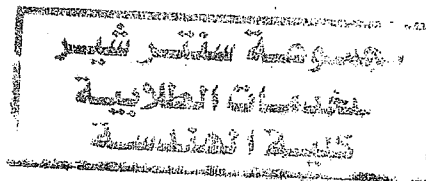 مجموعة سنتر شير
لخدمات الطلابية
كلية الهندسة